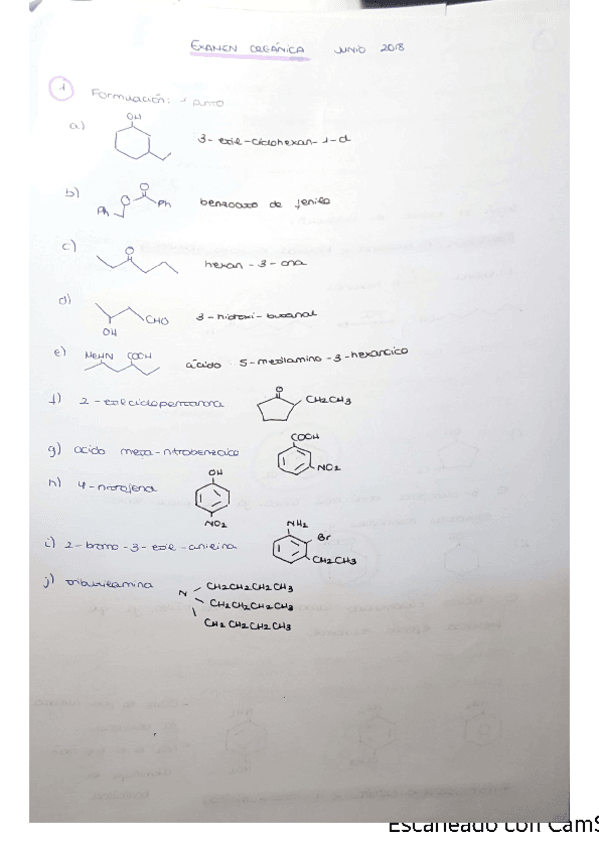 EXAMEN ORGÁNICA JUNIO 2018
1 Formulación: 1 punto
a) OH 3-etil-ciclohexan-1-ol
b) Ph O O Ph benzoato de fenilo
c) O hexan-3-ona
d) OH CHO 3-hidroxi-butanal
e) MeHN COOH ácido 5-metilamino-3-hexanoico
f) 2-etilciclopentanona O CH2CH3
g) acido meta-nitrobenzoico COOH NO2
h) 4-nitrofenol OH NO2
i) 2-bromo-3-etil-anilina NH2 Br CH2CH3
j) tributilamina N CH2CH2CH2CH3
CH2CH2CH2CH3
CH2CH2CH2CH3
Escaneado con CamS